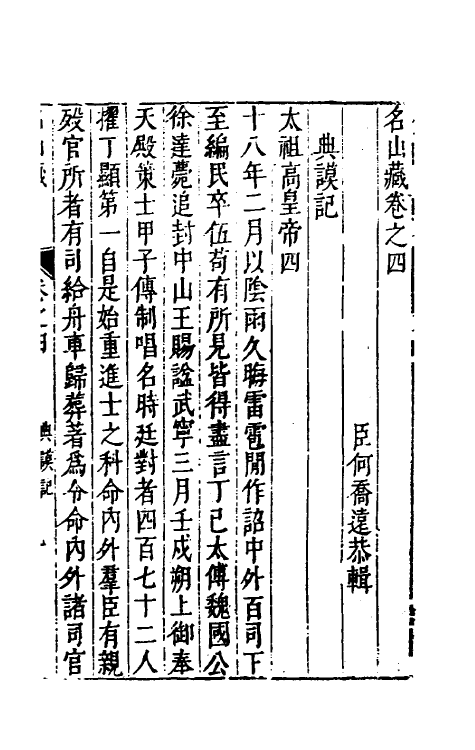 名山藏卷之四
臣何喬遠恭輯
典謨記
太祖高皇帝四
十八年二月以陰雨久晦雷雹間作詔中外百司下
至編民卒伍苟有所見皆得盡言丁巳太傅魏國公
徐達薨追封中山王賜諡武寧三月壬戌朔上御奉
天殿策士甲子傳制唱名時廷對者四百七十二人
擢丁顯第一自是始重進士之科命內外羣臣有親
歿官所者有司給舟車歸葬著爲令命內外諸司官
卷之四 典謨記